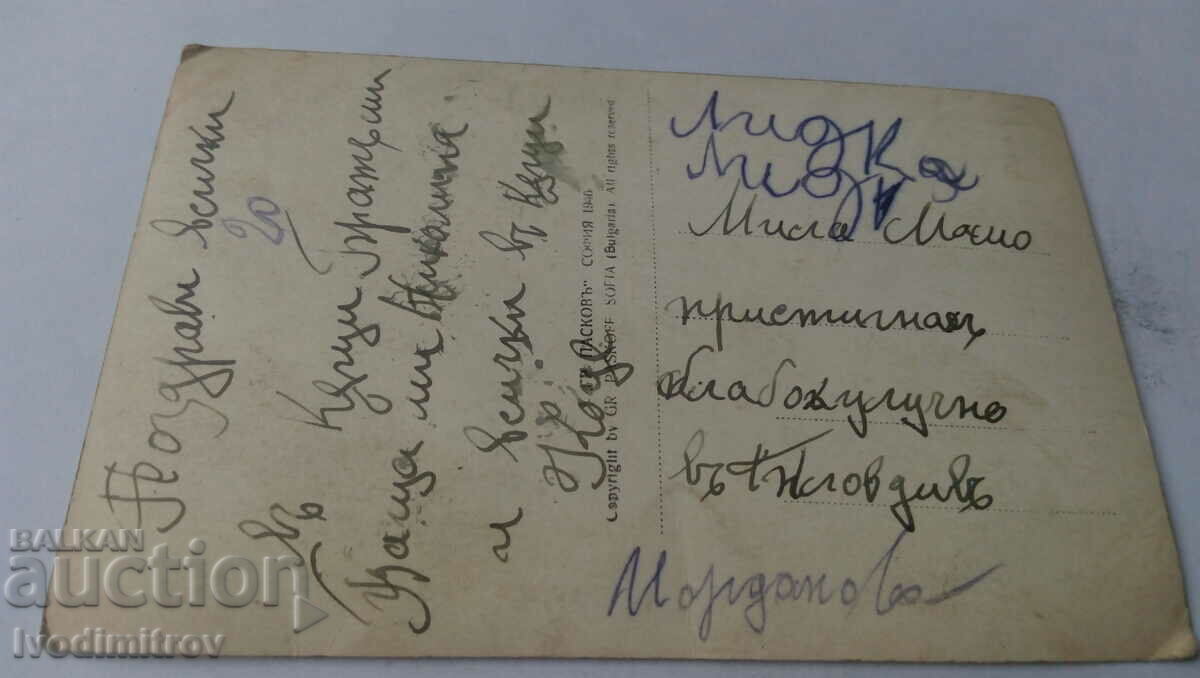 Лидка
Лидка
Мила Маню
пристигнахъ
благополучно
въ Пловдивъ
Йорданова
Поздрави всички
20
въ Къщи
Ваща ми
и всички въ Къщи
ГР. ПАСКОВЪ" СОФИЯ 1940
Copyright by GR PASKOFF SOFIA (Bulgaria). All rights reserved
BALKAN
auction
Ivodimitrov